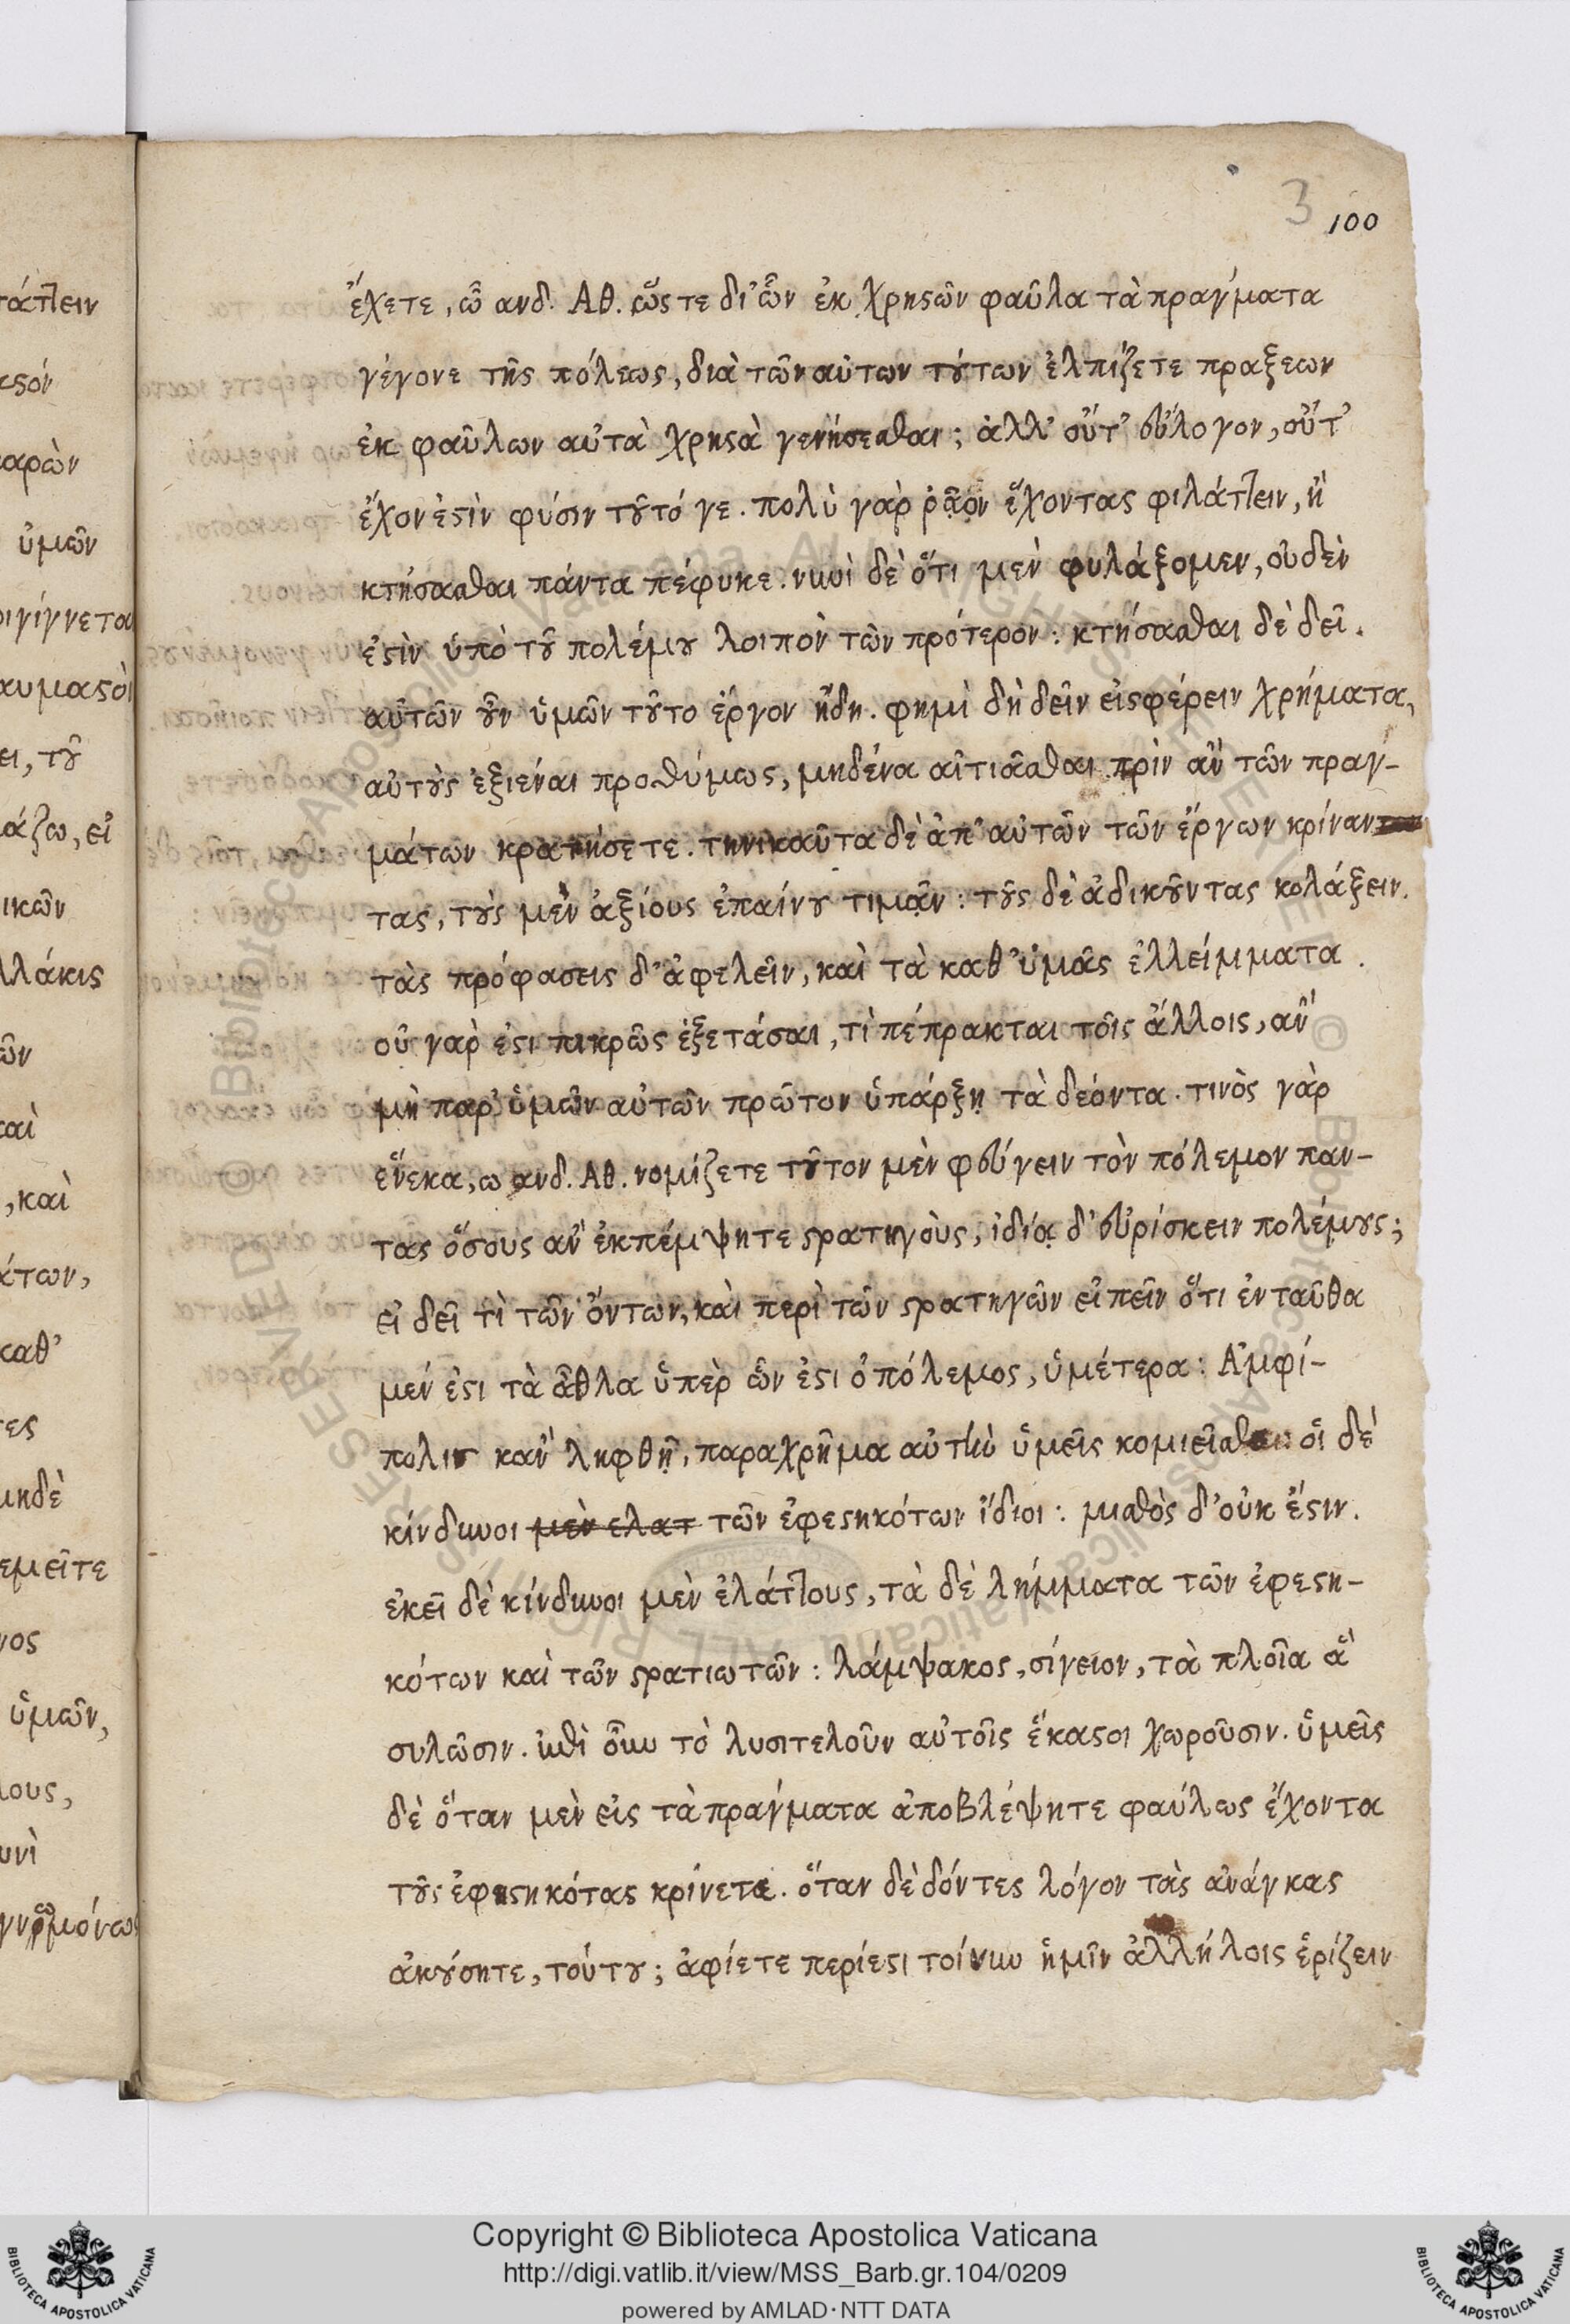 3 100
ἔχετε, ὦ ανδ. Αθ. ὥς τε δι' ὧν ἐκ χρηςῶν φαῦλα τὰ πραγματα
γέγονε τῆς πόλεως, διὰ τῶν αὐτων τȣ́των ἐλπίζετε πραξεων
ἐκ φαύλων αὐτὰ χρηςὰ γενήσεσθαι; ἀλλ' οὔτ' εὔλογον, οὔτ'
ἔχον ἐςὶν φύσιν τȣ͂τό γε. πολὺ γαρ ῥᾷον ἔχοντας φιλάττειν, ἢ
κτήσασθαι πάντα πέφυκε. νυνὶ δὲ ὅτι μεν φυλάξομεν, οὐδὲν
ἐςὶν ὑπὸ τȣ͂ πολέμȣ λοιπὸν τῶν πρότερον: κτήσασθαι δὲ δεῖ.
αὐτῶν ȣ͂ν ὑμῶν τȣ͂το ἔργον ἤδη. φημὶ δὴ δεῖν εἰςφέρειν χρήματα,
αὐτȣ̀ς ἐξιέναι προθύμως, μηδένα αἰτιᾶσθαι πρὶν ἂν τῶν πραγ-
μάτων κρατήσετε. τηνικαῦτα δὲ ἀπ' αὐτῶν τῶν ἔργων κρίναν
τας, τȣ̀ς μὲν ἀξίους ἐπαίνȣ τιμᾷν: τȣ̀ς δὲ ἀδικȣ͂ντας κολάζειν.
τὰς πρόφασεις δ' ἀφελεῖν, καὶ τὰ καθ' ὑμᾶς ἐλλείμματα.
οὐ γαρ ἐςι πικρῶς ἐξετάσαι, τὶ πέπρακται τοῖς ἄλλοις, ἂν
μὴ παρ' ὑμῶν αὐτῶν πρῶτον ὑπάρξῃ τὰ δεόντα. τινὸς γὰρ
ἕνεκα, ω ανδ. Αθ. νομίζετε τȣ͂τον μὲν φεύγειν τὸν πόλεμον παν-
τας ὅσους ἂν ἐκπέμψητε ςρατηγοὺς, ἰδίᾳ δ' εὑρίσκειν πολέμȣς;
εἰ δεῖ τὶ τῶν ὄντων, καὶ περὶ τῶν ςρατηγῶν εἰπεῖν ὅτι ἐνταῦθα
μέν ἐςι τὰ ἆθλα ὑπὲρ ὧν ἐςι ὁ πόλεμος, ὑμέτερα: Αμφί-
πολις καν ληφθῇ, παραχρῆμα αὐτὴν ὑμεῖς κομιεῖσθε: οἱ δὲ
κίνδυνοι μὲν ελατ τῶν ἐφεςηκότων ἴδιοι: μισθὸς δ' οὐκ ἔςιν.
ἐκεῖ δὲ κίνδυνοι μὲν ἐλάττους, τὰ δὲ λήμματα τῶν ἐφεςη-
κότων καὶ τῶν ςρατιωτῶν: λάμψακος, σίγειον, τὰ πλοῖα ἃ
συλῶσιν. ἐπὶ οὖν τὸ λυσιτελοῦν αὐτοῖς ἕκαςοι χωροῦσιν. ὑμεῖς
δὲ ὅταν μὲν εἰς τὰ πραγματα ἀποβλέψητε φαύλως ἔχοντα
τȣ̀ς ἐφεςηκότας κρίνετε. ὅταν δὲ δόντες λόγον τὰς ἀνάγκας
ἀκȣ́σητε, τούτȣ; ἀφίετε περίεςι τοίνυν ἡμῖν ἀλλήλοις ἐρίζειν
Copyright © Biblioteca Apostolica Vaticana
http://digi.vatlib.it/view/MSS_Barb.gr.104/0209
powered by AMLAD·NTT DATA